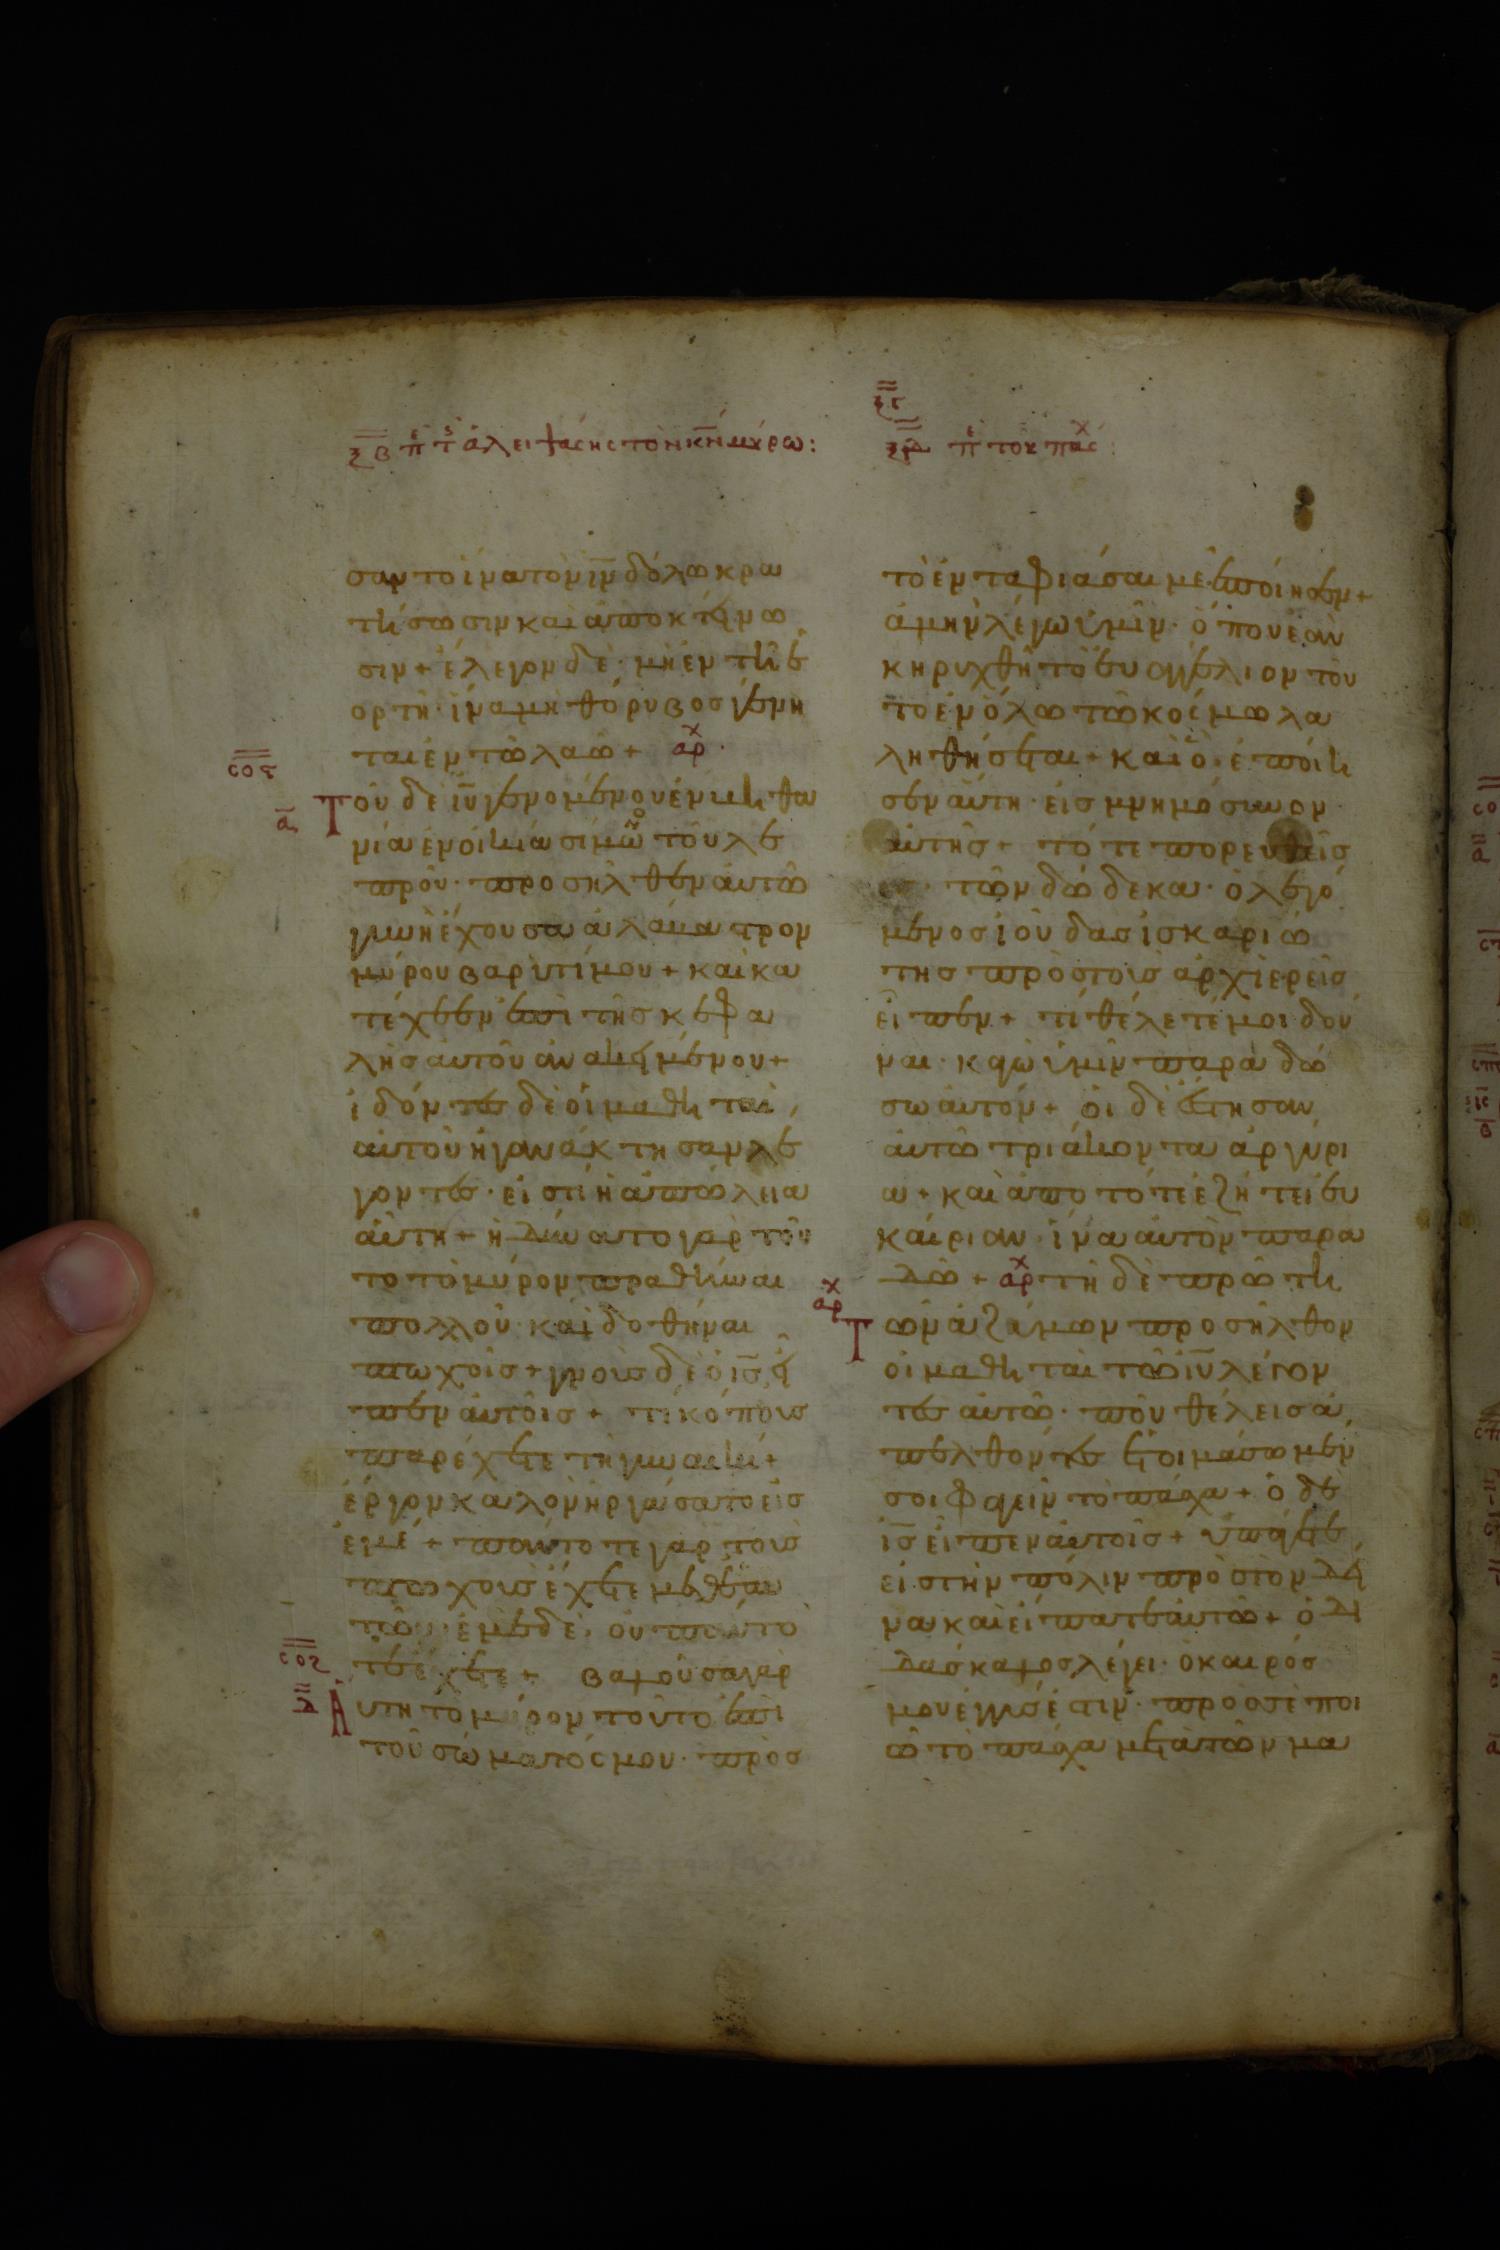 ξβ π τ ἀλειψάσης τὸν κν μύρω:
σαν το ἵνα τὸν ιν δόλω κρα
τήσωσιν καὶ ἀποκτείνω
σιν + ἔλεγον δὲ· μὴ ἐν τῆ ἑ
ορτῆ· ἵνα μὴ θόρυβος γένη
ται ἐν τῶ λαῶ + αρχ·
σος
α
Τοῦ δὲ ιυ γενομένου ἐν βηθα
νία ἐν οἰκία σίμωνο τοῦ λε
προῦ· προσῆλθεν αὐτῶ
γυνὴ ἔχουσα ἀλάβαστρον
μύρου βαρυτίμου + καὶ κα
τέχεεν ἐπὶ τῆς κεφα
λῆς αὐτοῦ ἀνακειμένου +
ἰδόντες δὲ οἱ μαθηταὶ
αὐτοῦ ἠγανάκτησαν λέ
γοντες· εἰς τί ἡ ἀπώλεια
αὕτη + ἠδύνατο γὰρ τοῦ
το τὸ μύρον πραθῆναι
πολλοῦ· καὶ δοθῆναι
πτωχοῖς + γνοὺς δὲ ὁ ις εἶ
πεν αὐτοῖς + τί κόπους
παρέχετε τῆ γυναικί +
ἔργον καλὸν ἠργάσατο εἰς
ἐμέ + πάντοτε γὰρ τοὺς
πτωχοὺς ἔχετε μεθ' ἑαυ
τῶν· ἐμὲ δὲ· οὐ πάντο
τε ἔχετε + βαλοῦσα γὰρ
σος
δ
Αὕτη τὸ μύρον τοῦτο ἐπὶ
τοῦ σώματός μου· πρὸς
ξδ π του πασχ:
τὸ ἐνταφιάσαι με ἐποίησεν +
ἀμὴν λέγω ὑμῖν· ὅπου ἐὰν
κηρυχθῆ τὸ εὐαγγέλιον τοῦ
το ἐν ὅλω τῶ κόσμω λα
ληθήσεται + καὶ ὃ ἐποίη
σεν αὕτη· εἰς μνημόσυνον
αὐτῆς + τότε πορευθεὶς
τῶν δώδεκα· ὁ λεγό
μενος ἰούδας ἰσκαριώ
της πρὸς τοὺς ἀρχιερεῖς
εἶπεν + τί θέλετέ μοι δοῦ
ναι· καγὼ ὑμῖν παραδώ
σω αὐτόν + οἱ δὲ ἔστησαν
αὐτῶ τριάκοντα ἀργύρι
α + καὶ ἀπο τότε ἐζήτει εὐ
καιρίαν ἵνα αὐτὸν παρα
δῶ + αρχ τῆ δὲ πρώτη
αρχ
Τῶν ἀζύμων προσῆλθον
οἱ μαθηταὶ τῶ ιυ λέγον
τες αὐτῶ· ποῦ θέλεις ἀ
πελθόντες ἑτοιμάσωμέν
σοι φαγεῖν τὸ πάσχα + ὁ δὲ
ις εἶπεν αὐτοῖς + ὑπάγετε
εἰς τὴν πόλιν πρὸς τὸν δεῖ
να καὶ εἴπατε αὐτῶ + ὁ δι
δάσκαλος λέγει· ὁ καιρός
μου ἐγγύς ἐστιν· πρὸς σὲ ποι
ῶ τὸ πάσχα μετὰ τῶν μα